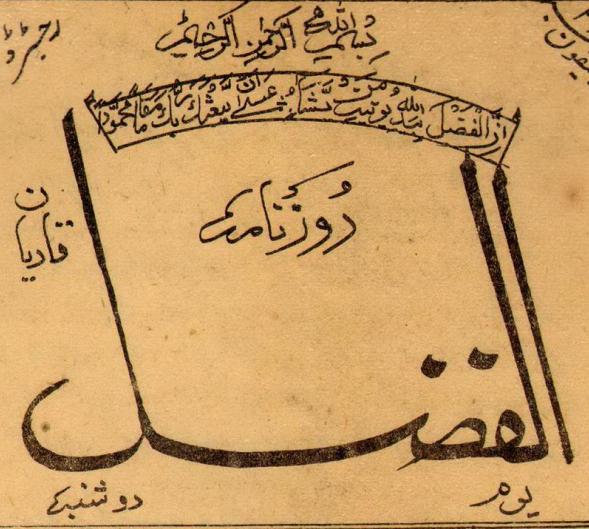 بسم الله الرحمن الرحیم
رجسٹرڈ
ان الفضل بید الله یوتیہ من یشاء عسىٰ ان یبعثک ربک مقاما محمودا
روزنامہ
قادیان
الفضل
یوم
دو شنبہ